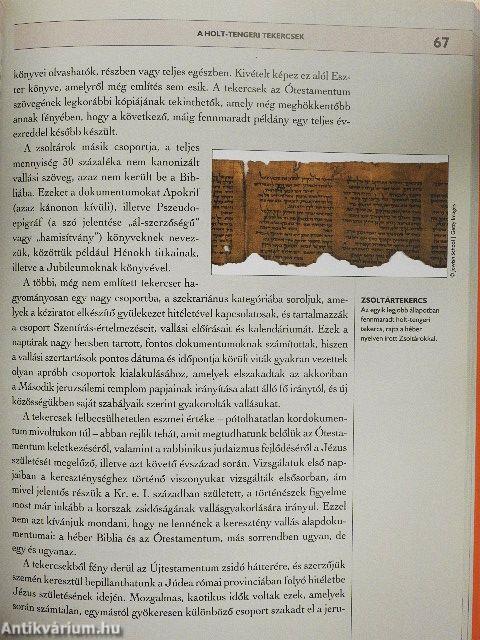 A HOLT-TENGERI TEKERCSEK
67
könyvei olvashatók, részben vagy teljes egészben. Kivételt képez ez alól Esz-
ter könyve, amelyről még említés sem esik. A tekercsek az Ótestamentum
szövegének legkorábbi kópiájának tekinthetők, amely még meghökkentőbb
annak fényében, hogy a következő, máig fennmaradt példány egy teljes év-
ezreddel később készült.
A zsoltárok másik csoportja, a teljes
mennyiség 30 százaléka nem kanonizált
vallási szöveg, azaz nem került be a Bib-
liába. Ezeket a dokumentumokat Apokrif
(azaz kánonon kívüli), illetve Pszeudo-
epigráf (a szó jelentése „ál-szerzőségű”
vagy „hamisítvány”) könyveknek nevez-
zük, közöttük például Hénokh titkainak,
illetve a Jubileumoknak könyvével.
A többi, még nem említett tekercset ha-
gyományosan egy nagy csoportba, a szektariánus kategóriába soroljuk, ame-
lyek a kéziratot elkészítő gyülekezet hitéletével kapcsolatosak, és tartalmazzák
a csoport Szentírás-értelmezéseit, vallási előírásait és kalendáriumát. Ezek a
naptárak nagy becsben tartott, fontos dokumentumoknak számítottak, hiszen
a vallási szertartások pontos dátuma és időpontja körüli viták gyakran vezettek
olyan apróbb csoportok kialakulásához, amelyek elszakadtak az akkoriban
a Második jeruzsálemi templom papjainak irányítása alatt álló fő iránytól, és új
közösségükben saját szabályaik szerint gyakorolták vallásukat.
A tekercsek felbecsülhetetlen eszmei értéke – pótolhatatlan kordokumen-
tum mivoltukon túl – abban rejlik tehát, amit megtudhatunk belőlük az Ótesta-
mentum keletkezéséről, valamint a rabbinikus judaizmus fejlődéséről a Jézus
születését megelőző, illetve azt követő évszázad során. Vizsgálatuk első nap-
jaiban a kereszténységhez történő viszonyukat vizsgálták elsősorban, ám
mivel jelentős részük a Kr. e. I. században született, a történészek figyelme
most már inkább a korszak zsidóságának vallásgyakorlására irányul. Ezzel
nem azt kívánjuk mondani, hogy ne lennének a keresztény vallás alapdoku-
mentumai: a héber Biblia és az Ótestamentum, más sorrendben ugyan, de
egy és ugyanaz.
A tekercsekből fény derül az Újtestamentum zsidó hátterére, és szerzőjük
szemén keresztül bepillanthatunk a Júdea római provinciában folyó hitéletbe
Jézus születésének idején. Mozgalmas, kaotikus idők voltak ezek, amelyek
során számtalan, egymástól gyökeresen különböző csoport szakadt el a jeru-
ZSOLTÁRTEKERCS
Az egyik legjobb állapotban
fennmaradt holt-tengeri
tekercs, rajta a héber
nyelven írott Zsoltárokkal.
Getty Images
Antikvárium.hu